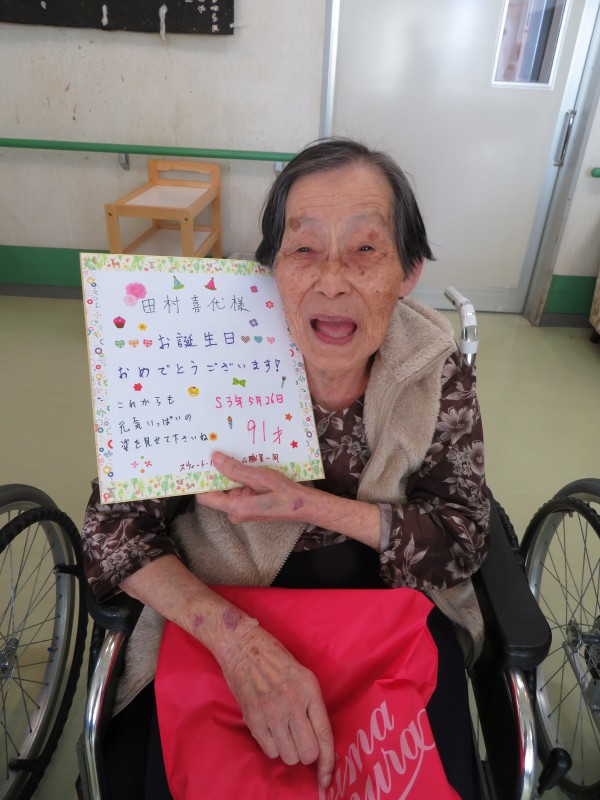 田村喜代様
お誕生日
おめでとうございます!
これからも
元気いっぱいの
姿を見せて下さいね
S3年5月26日
91才
スウィート
職員一同